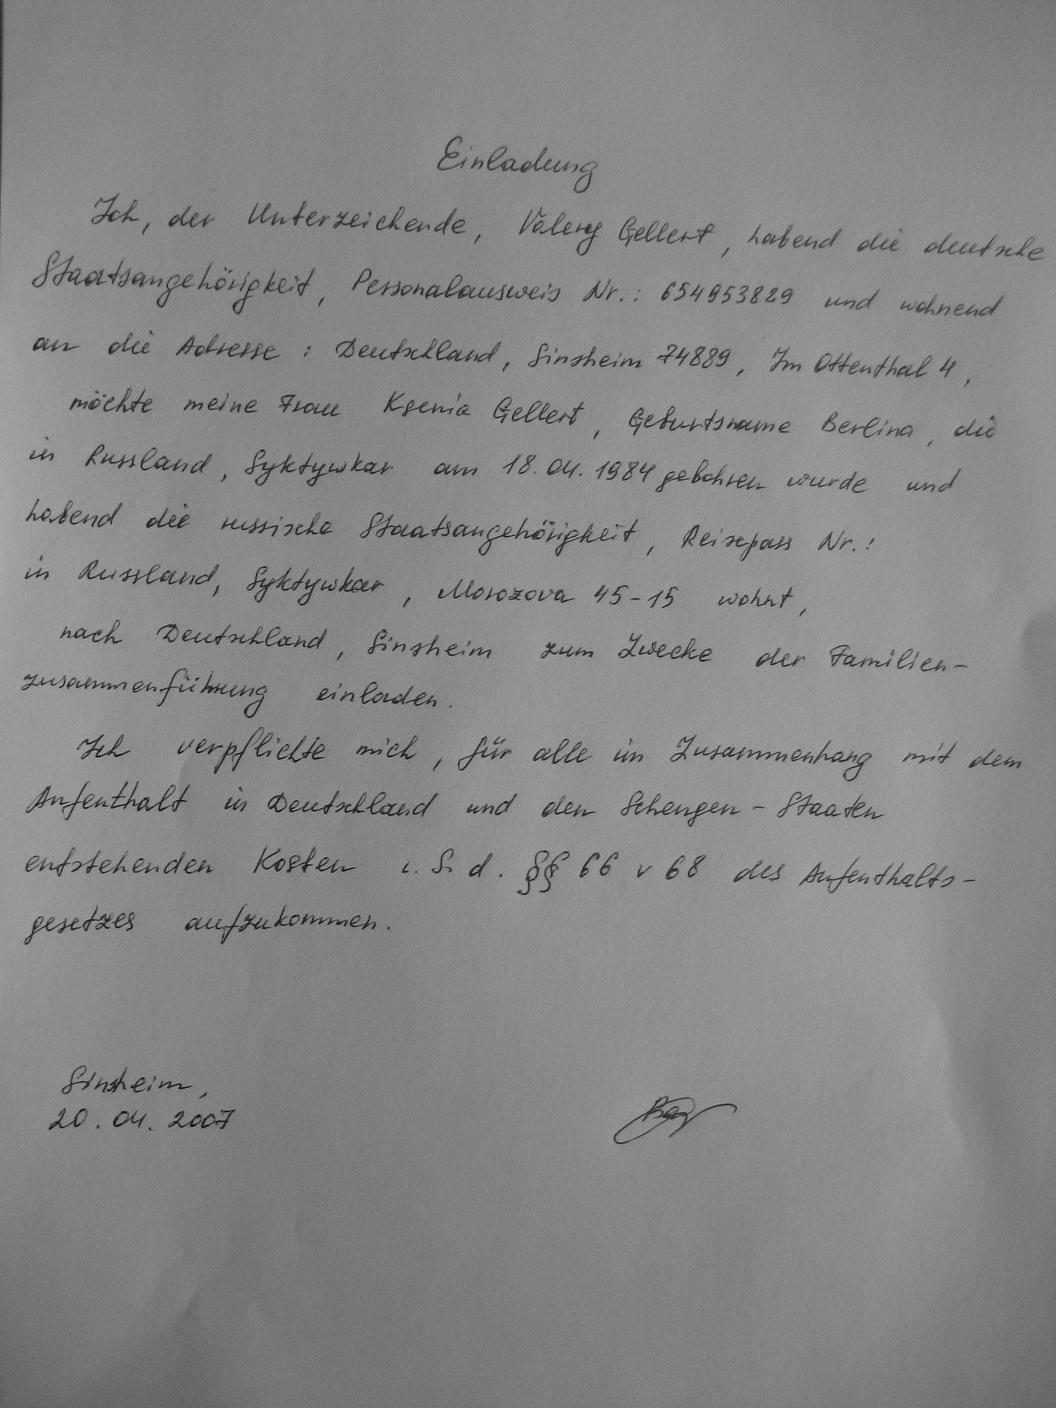 Einladung
Ich, der Unterzeichende, Valery Gellert, habend die deutsche
Staatsangehörigkeit, Personalausweis Nr.: 654953829 und wohnend
an die Adresse: Deutschland, Sinsheim 74889, Im Ottenthal 4,
möchte meine Frau Ksenia Gellert, Geburtsname Berlina, die
in Russland, Syktywkar am 18.04.1984 gebohren wurde und
habend die russische Staatsangehörigkeit, Reisepass Nr.:
in Russland, Syktywkar, Morozova 45-15 wohnt,
nach Deutschland, Sinsheim zum Zwecke der Familien-
zusammenführung einladen.
Ich verpflichte mich, für alle im Zusammenhang mit dem
Aufenthalt in Deutschland und den Schengen-Staaten
entstehenden Kosten i. S. d. §§ 66 v 68 des Aufenthalts-
gesetzes aufzukommen.
Sinsheim,
20.04.2007